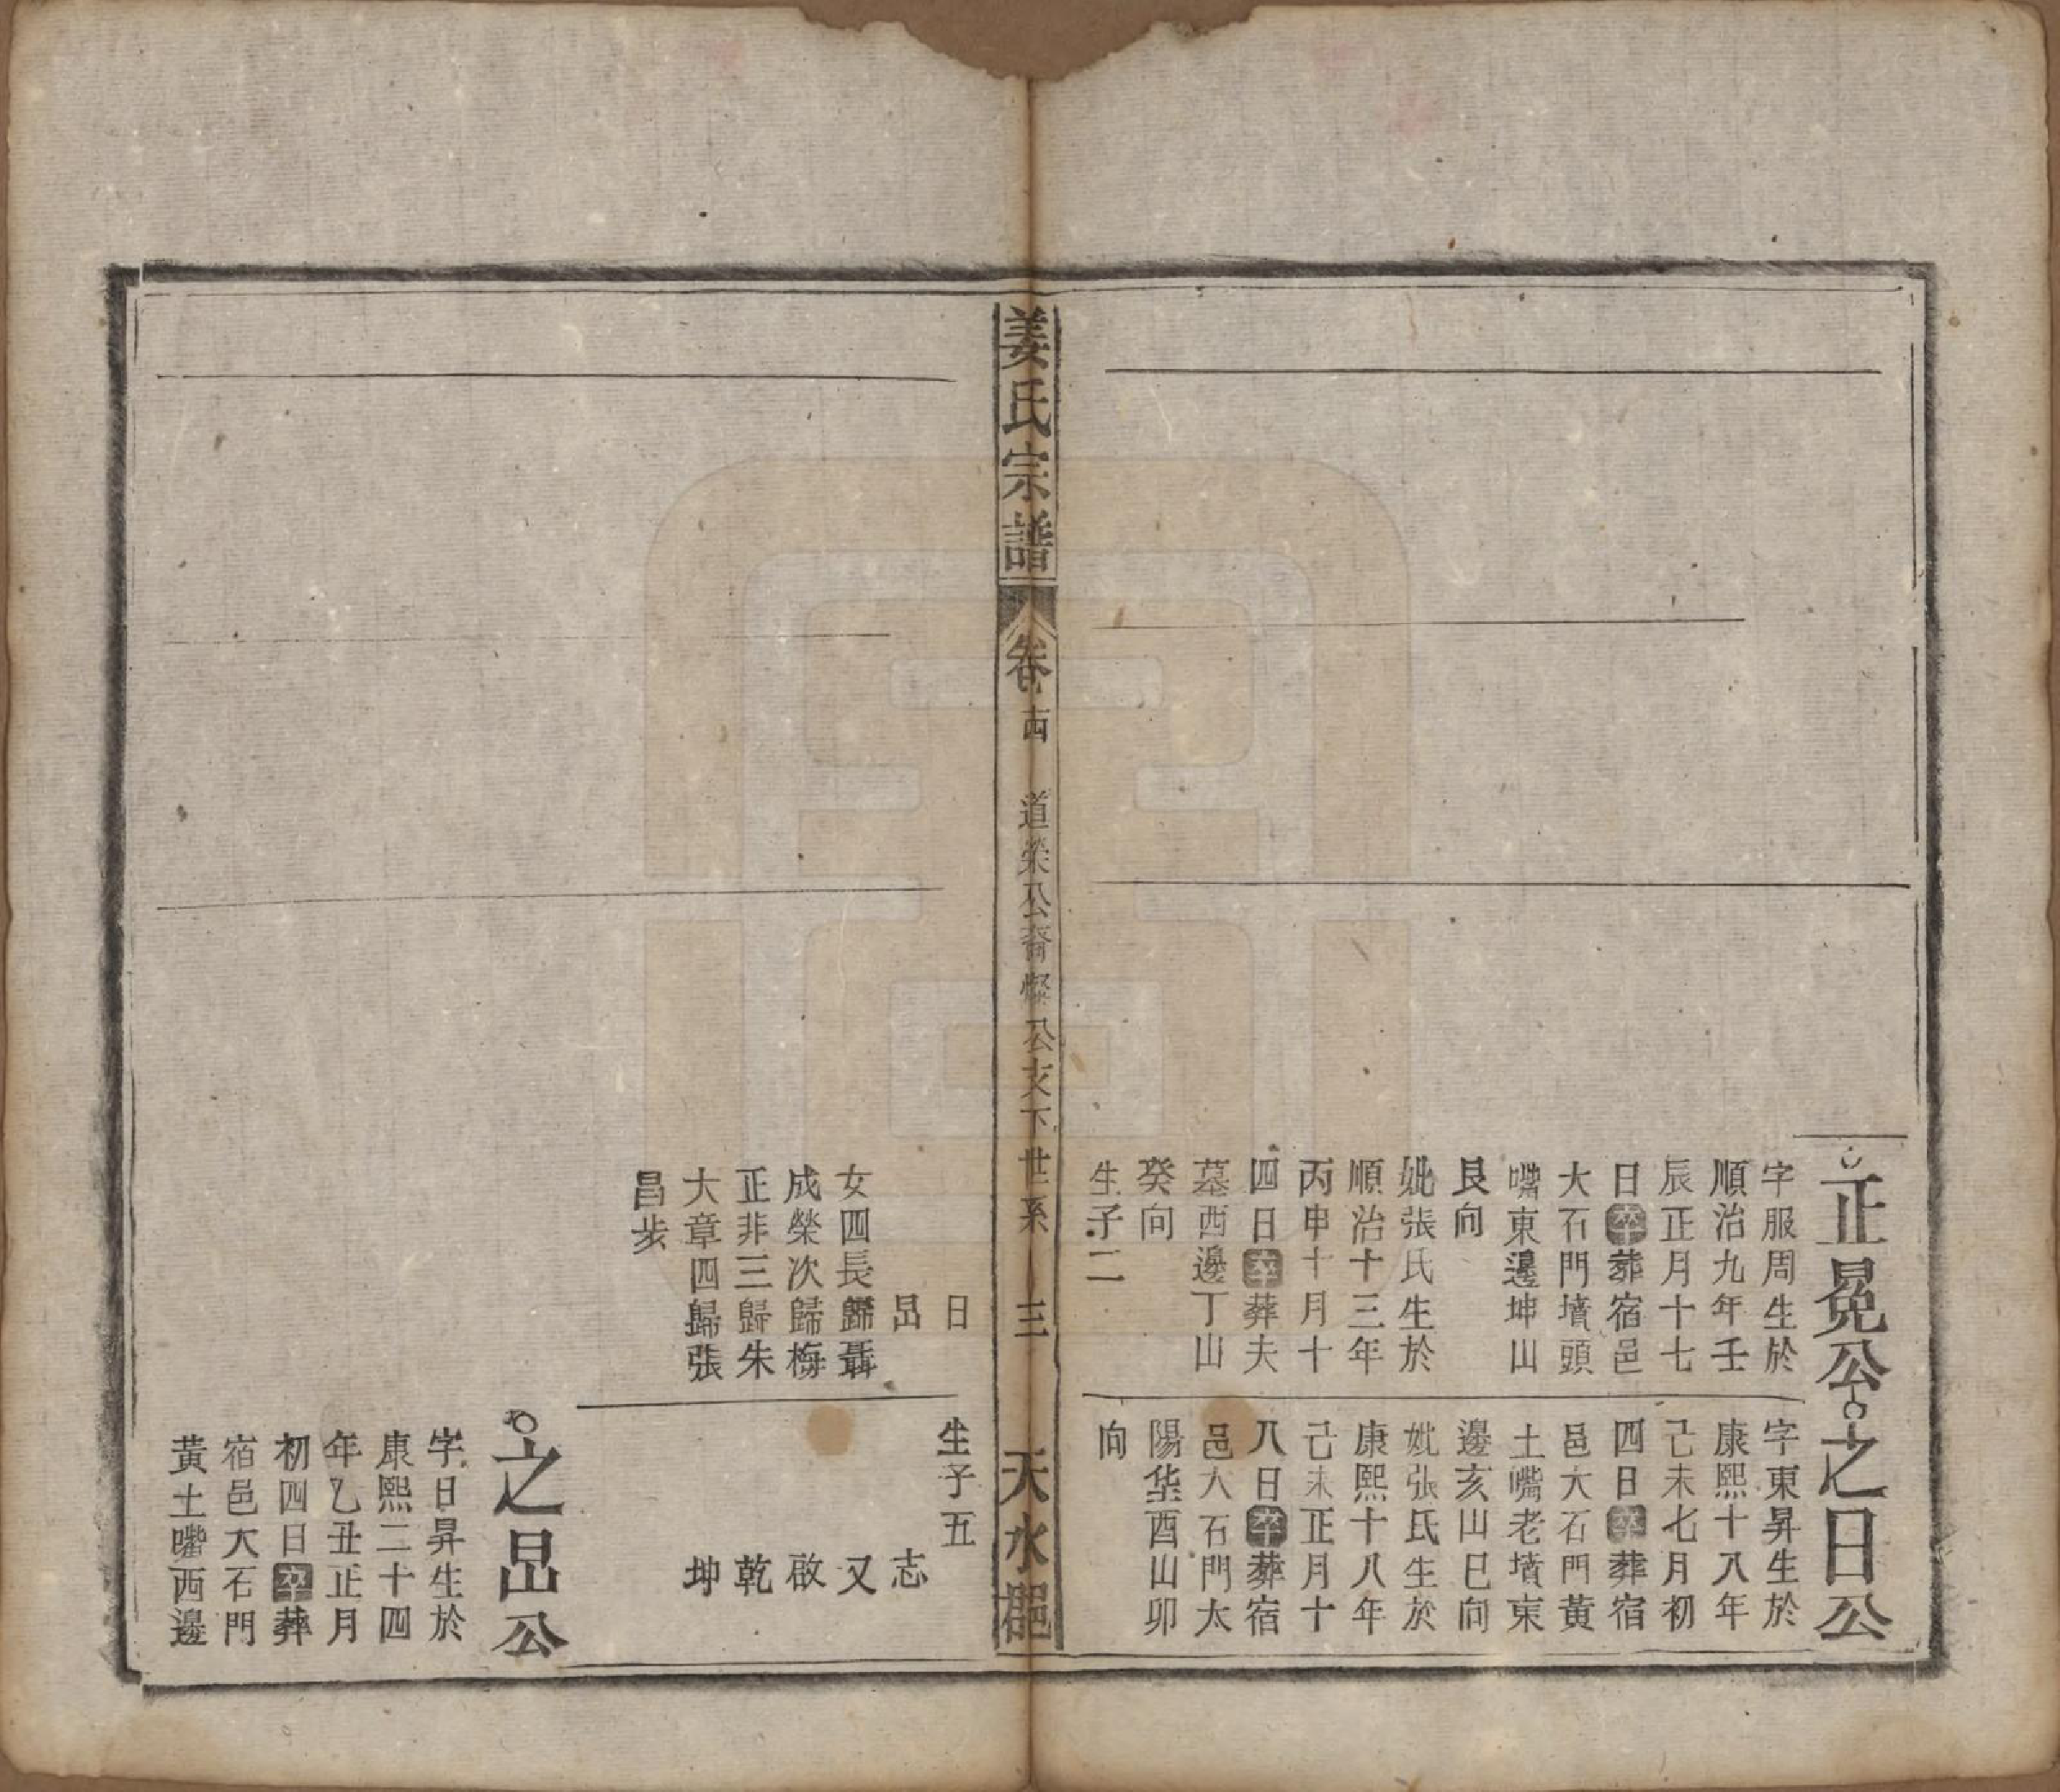 正冕公
字服周生於
順治九年壬
辰正月十七
日卒葬宿邑
大石門墳頭
嘴東邊坤山
艮向
妣張氏生於
順治十三年
丙申十月十
四日卒葬夫
墓西邊丁山
癸向
生子二
之日公
字東昇生於
康熙十八年
己未七月初
四日卒葬宿
邑大石門黃
土嘴老墳東
邊亥山巳向
妣張氏生於
康熙十八年
己未正月十
八日卒葬宿
邑大石門太
陽垡酉山卯
向
姜氏宗譜
卷十四
道榮公裔燦公支下世系
三
天水郡
日
昍
女四長歸聶
成榮次歸梅
正非三歸朱
大章四歸張
昌步
生子五
志
又
啟
乾
坤
之昍公
字日昇生於
康熙二十四
年乙丑正月
初四日卒葬
宿邑大石門
黃土嘴西邊